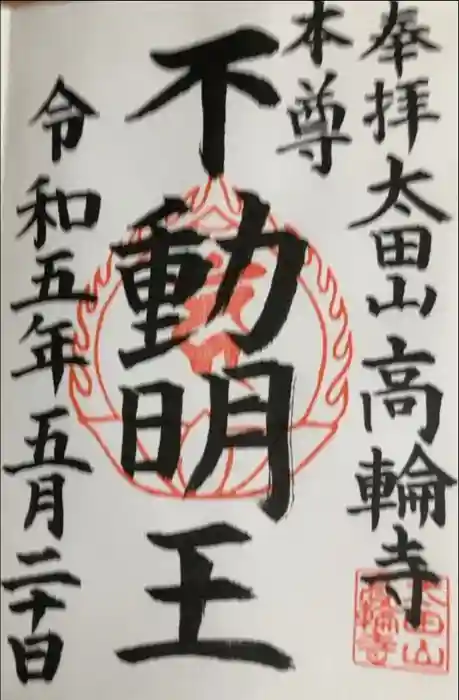 奉拝 太田山 高輪寺
本尊
不動明王
令和五年 五月二十日
太田山
高輪寺